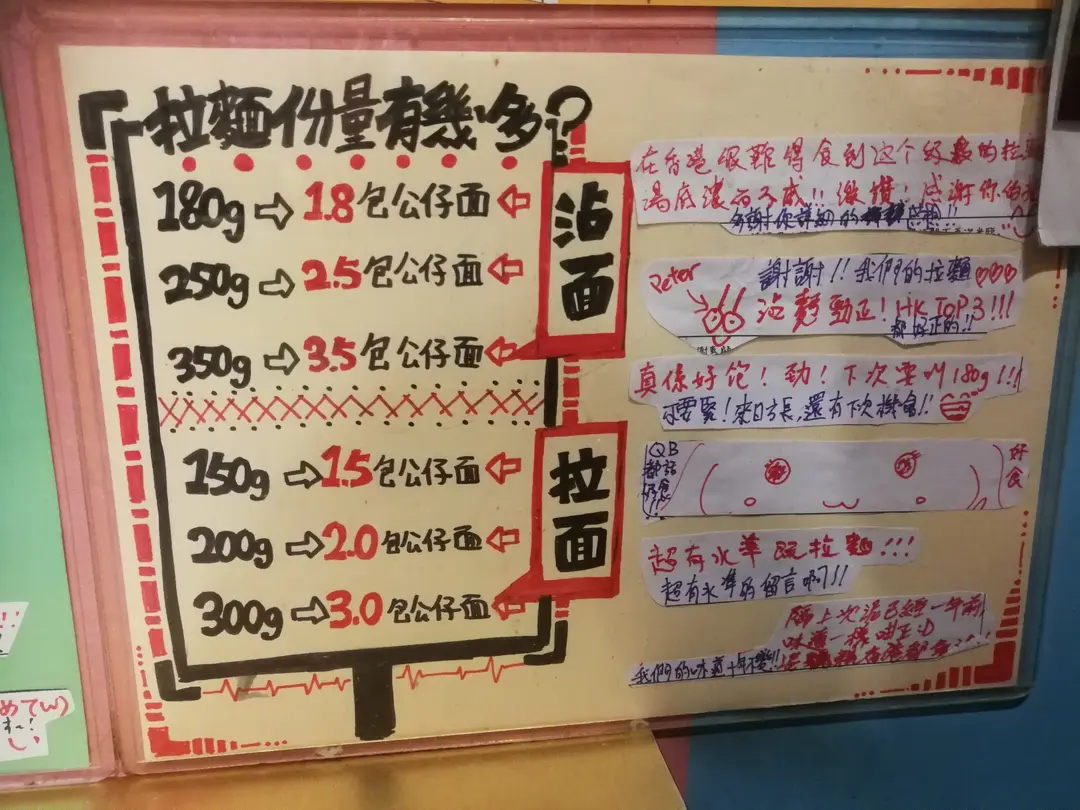 拉麵份量有幾多?
180g ⇨ 1.8 包公仔面 ⇦
250g → 2.5 包公仔面 ⇦
350g → 3.5 包公仔面 ⇦
沾面
150g → 1.5 包公仔面 ⇦
200g ⇨ 2.0 包公仔面 ⇦
300g ⇨ 3.0 包公仔面 ⇦
拉面
在香港很難得食到这个級數的拉
湯底濃而不咸!! 激讚! 感謝你的
多謝你詳細的
Peter
謝謝!! 我們的拉麵♡♡♡
沾麵勁正! HK TOP 3!!!
都好正的!!
真係好飽! 劲! 下次要叫180g!!!
不要緊! 來日方長,還有下次機會!!
QB
都話
好食
!!
好食
超有水準既拉麵!!!
超有水準的留言啊!!
隔上次泥已經一年前
味道一樣咁正:D
我們的味道十年不變!!
めてw)
す~!